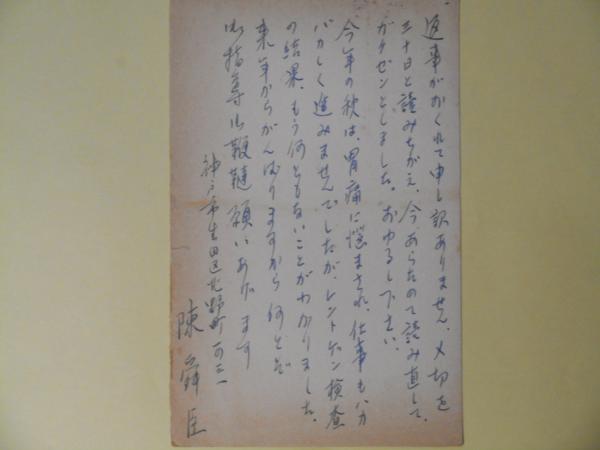 返事がおくれて申し訳ありません。〆切を
三十日と読みちがえ、今あらためて読み直して、
ガクゼンとしました。おゆるし下さい。
今年の秋は、胃痛に悩まされ、仕事もハカ
バカしく進みませんでしたが、レントゲン検査
の結果、もう何ともないことがわかりました。
来年からがんばりますから何とぞ
御指導御鞭韃願いあげます
神戸市生田区北野町
陳舜臣